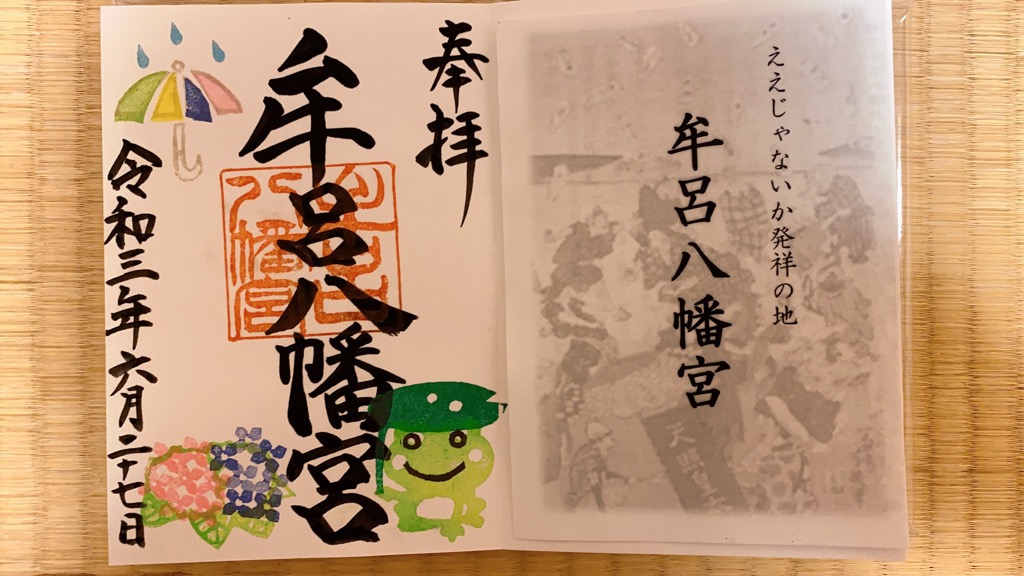 ええじゃないか発祥の地
牟呂八幡宮
奉拝
牟呂八幡宮
令和三年六月二十七日
牟呂
八幡宮